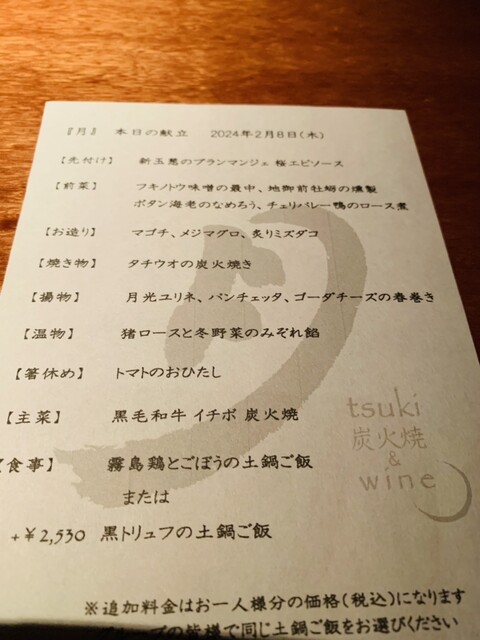 『月』 本日の献立 2024年2月8日(木)
【先付け】 新玉葱のブランマンジェ 桜エビソース
【前菜】 フキノトウ味噌の最中、地御前牡蛎の燻製
ボタン海老のなめろう、チェリバレー鴨のロース煮
【お造り】 マゴチ、メジマグロ、炙りミズダコ
【焼き物】 タチウオの炭火焼き
【揚物】 月光ユリネ、パンチェッタ、ゴーダチーズの春巻き
【温物】 猪ロースと冬野菜のみぞれ餡
【箸休め】 トマトのおひたし
【主菜】 黒毛和牛 イチボ 炭火焼
【食事】 霧島鶏とごぼうの土鍋ご飯
または
+¥2,530 黒トリュフの土鍋ご飯
tsuki
炭火焼
&
wine
※追加料金はお一人様分の価格(税込)になります
グループの皆様で同じ土鍋ご飯をお選びください